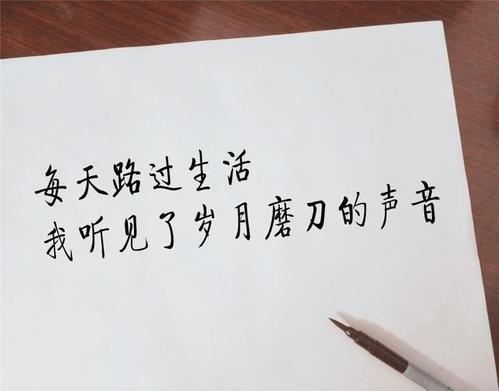 每天路过生活
我听见了岁月磨刀的声音